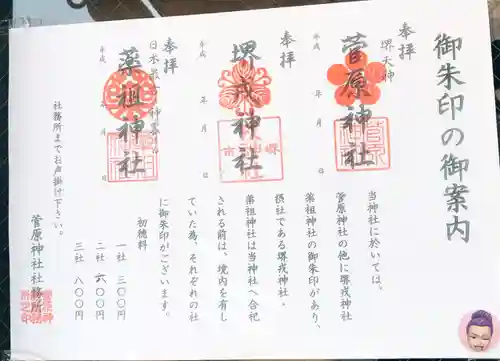 御朱印の御案内
奉拝
堺天神
菅原神社
平成 年 月 日
奉拝
堺戎神社
平成 年 月 日
奉拝
薬祖神社
平成 年 月 日
当神社に於いては、
菅原神社の他に堺戎神社
薬祖神社の御朱印があり、
摂社である堺戎神社、
薬祖神社は当神社へ合祀
される前は、境内を有し
ていた為、それぞれの社
に御朱印がございます。
初穂料
一社 三〇〇円
二社 六〇〇円
三社 八〇〇円
社務所までお声掛け下さい。
菅原神社社務所